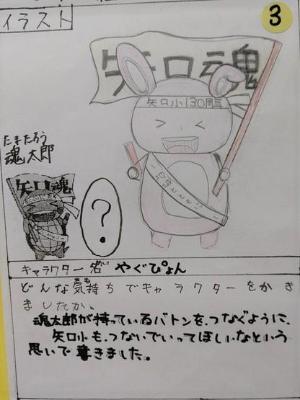 イラスト
3
矢口魂
矢口小130周
たまたろう
魂太郎
矢口魂
?
キャラクター名 やぐぴょん
どんな気持ちでキャラクターをかき
ましたか。
魂太郎が持っているバトンを、つなぐように、
矢口小も、つないでいってほしいなという
思いで書きました。